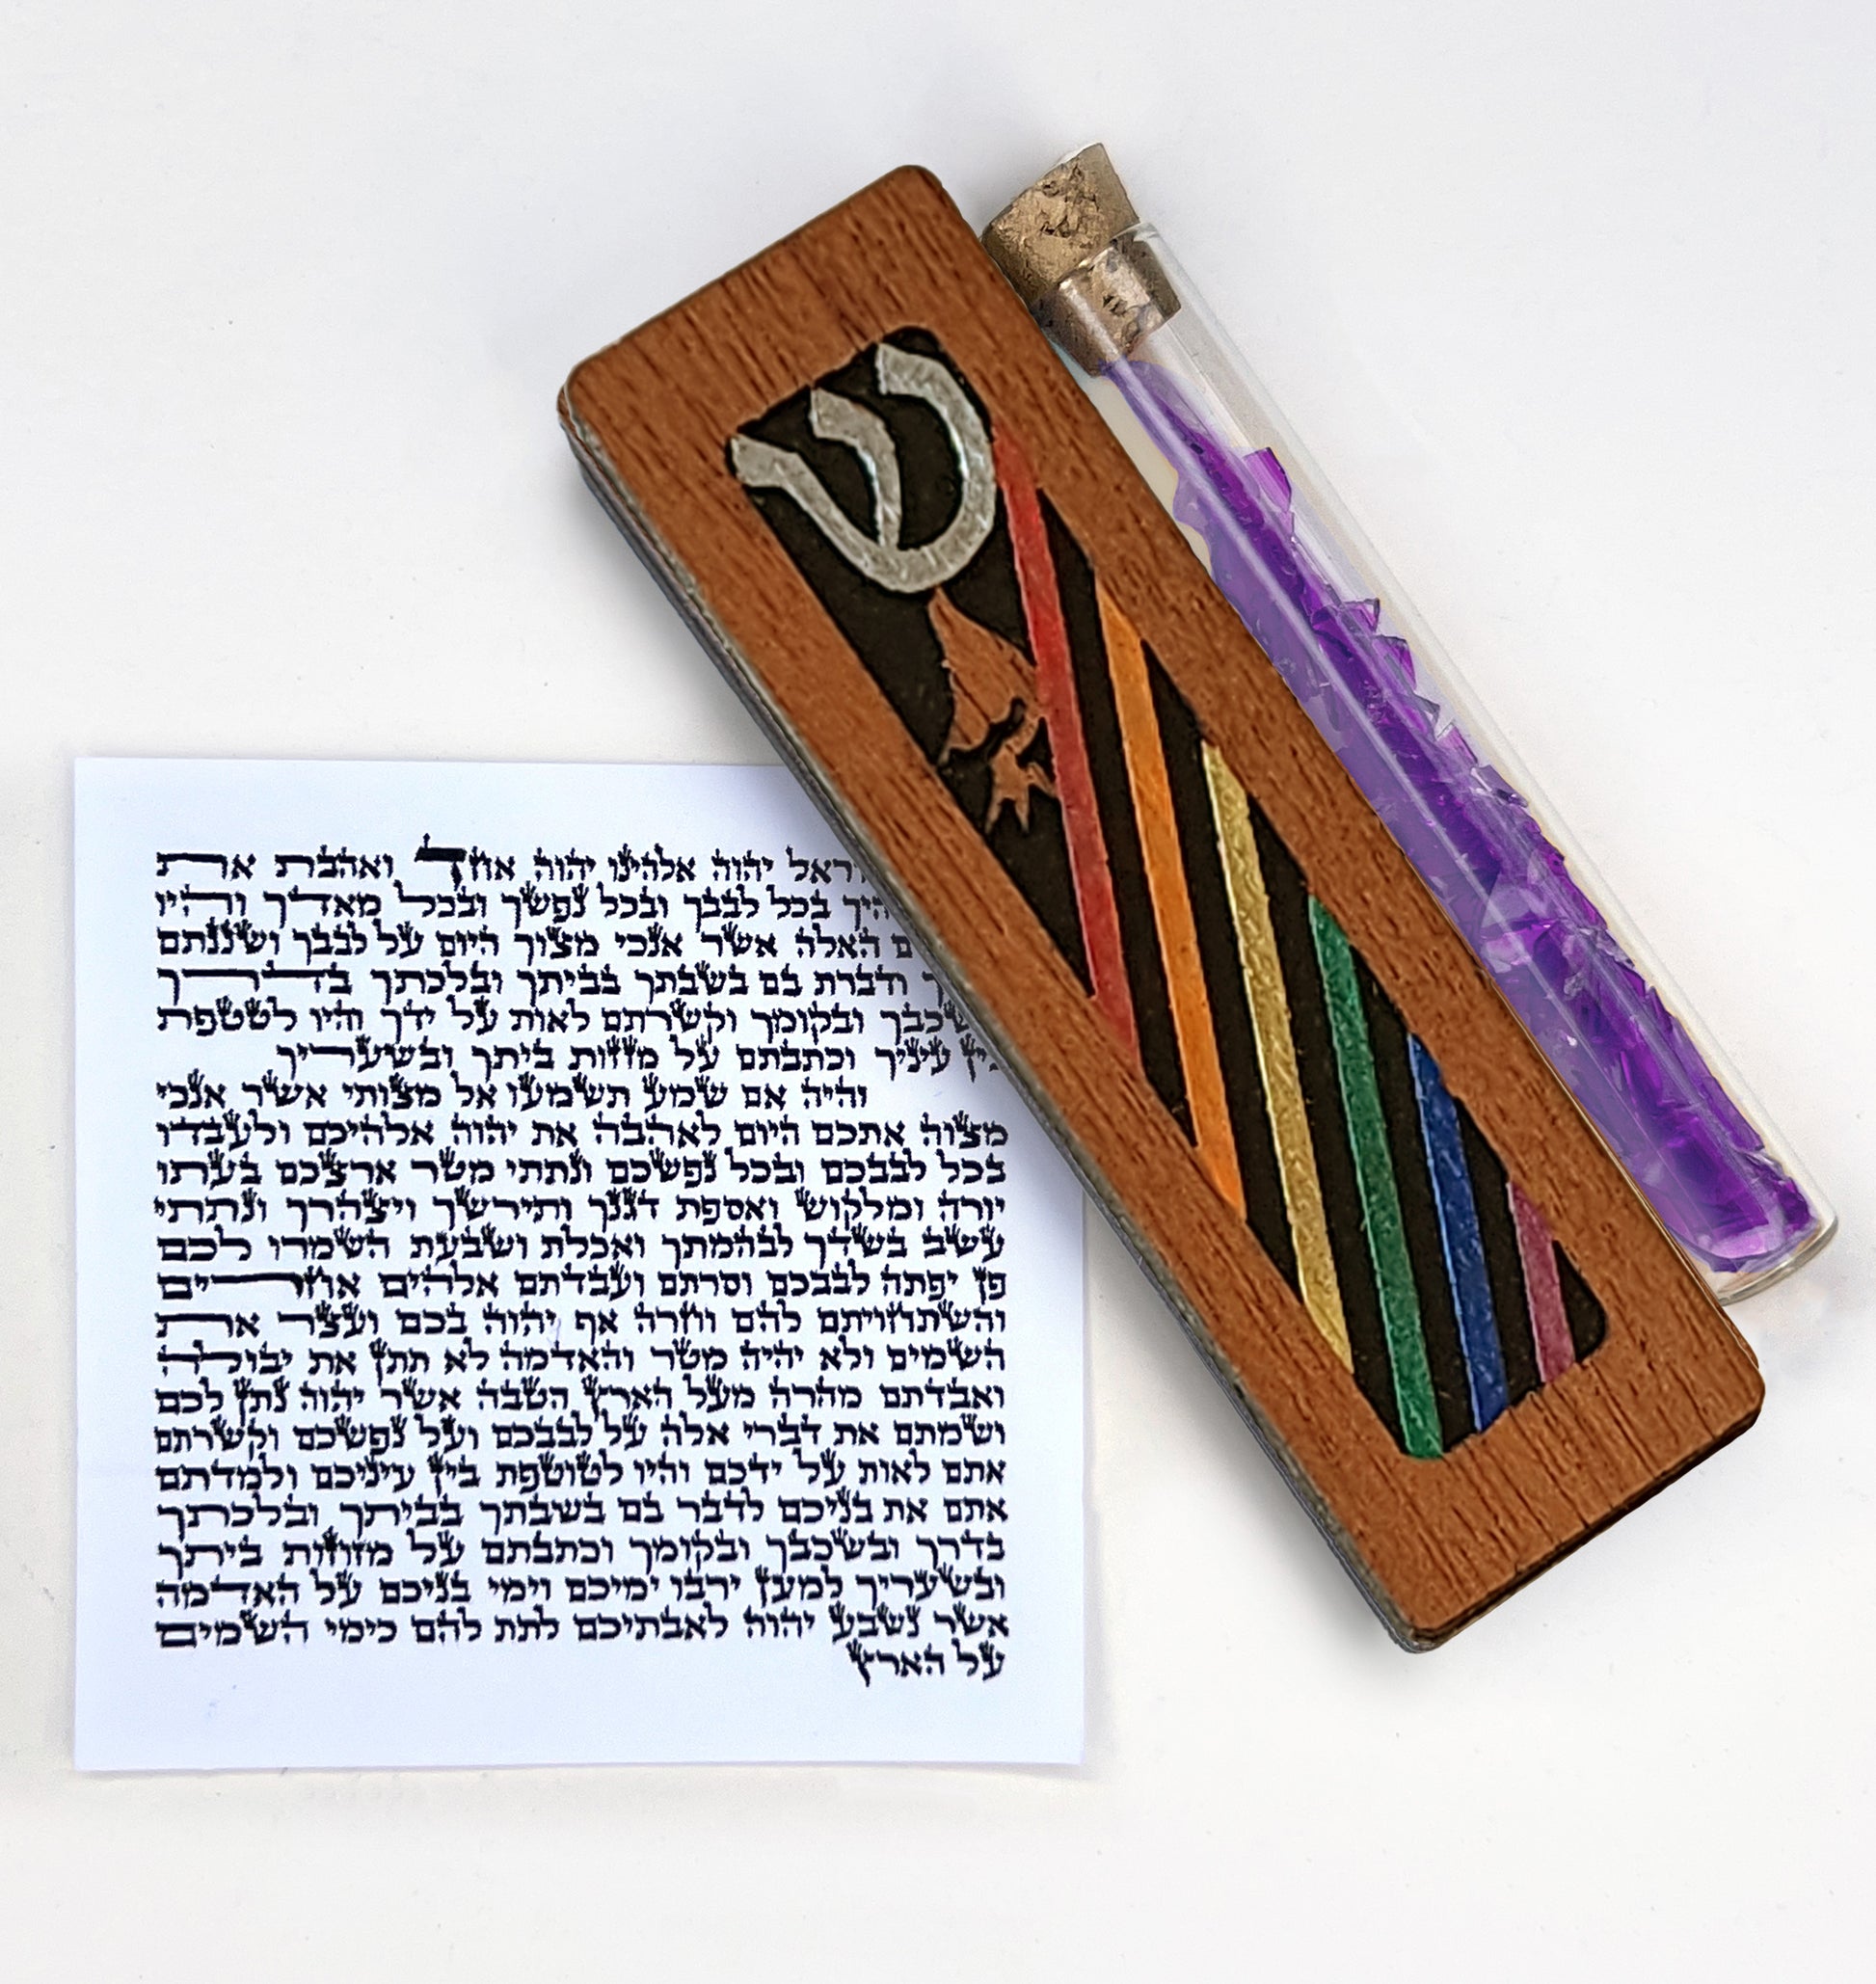 ש
ראל יהוה אלהינו יהוה אחד ואהבת את
היך בכל לבבך ובכל נפשך ובכל מאדך והיו
ם האלה אשר אנכי מצוך היום על לבבך ושננתם
ך ודברת בם בשבתך בביתך ובלכתך בדרך
שכבך ובקומך וקשרתם לאות על ידך והיו לטטפת
בין עיניך וכתבתם על מזזות ביתך ובשעריך
והיה אם שמע תשמעו אל מצותי אשר אנכי
מצוה אתכם היום לאהבה את יהוה אלהיכם ולעבדו
בכל לבבכם ובכל נפשכם ונתתי מטר ארצכם בעתו
יורה ומלקוש ואספת דגנך ותירשך ויצהרך ונתתי
עשב בשדך לבהמתך ואכלת ושבעת השמרו לכם
פן יפתה לבבכם וסרתם ועבדתם אלהים אחרים
והשתחויתם להם וחרה אף יהוה בכם ועצר את
השמים ולא יהיה מטר והאדמה לא תתן את יבולה
ואבדתם מהרה מעל הארץ הטבה אשר יהוה נתן לכם
ושמתם את דברי אלה על לבבכם ועל נפשכם וקשרתם
אתם לאות על ידכם והיו לטוטפת בין עיניכם ולמדתם
אתם את בניכם לדבר בם בשבתך בביתך ובלכתך
בדרך ובשכבך ובקומך וכתבתם על מזוזות ביתך
ובשעריך למען ירבו ימיכם וימי בניכם על האדמה
אשר נשבע יהוה לאבתיכם לתת להם כימי השמים
על הארץ